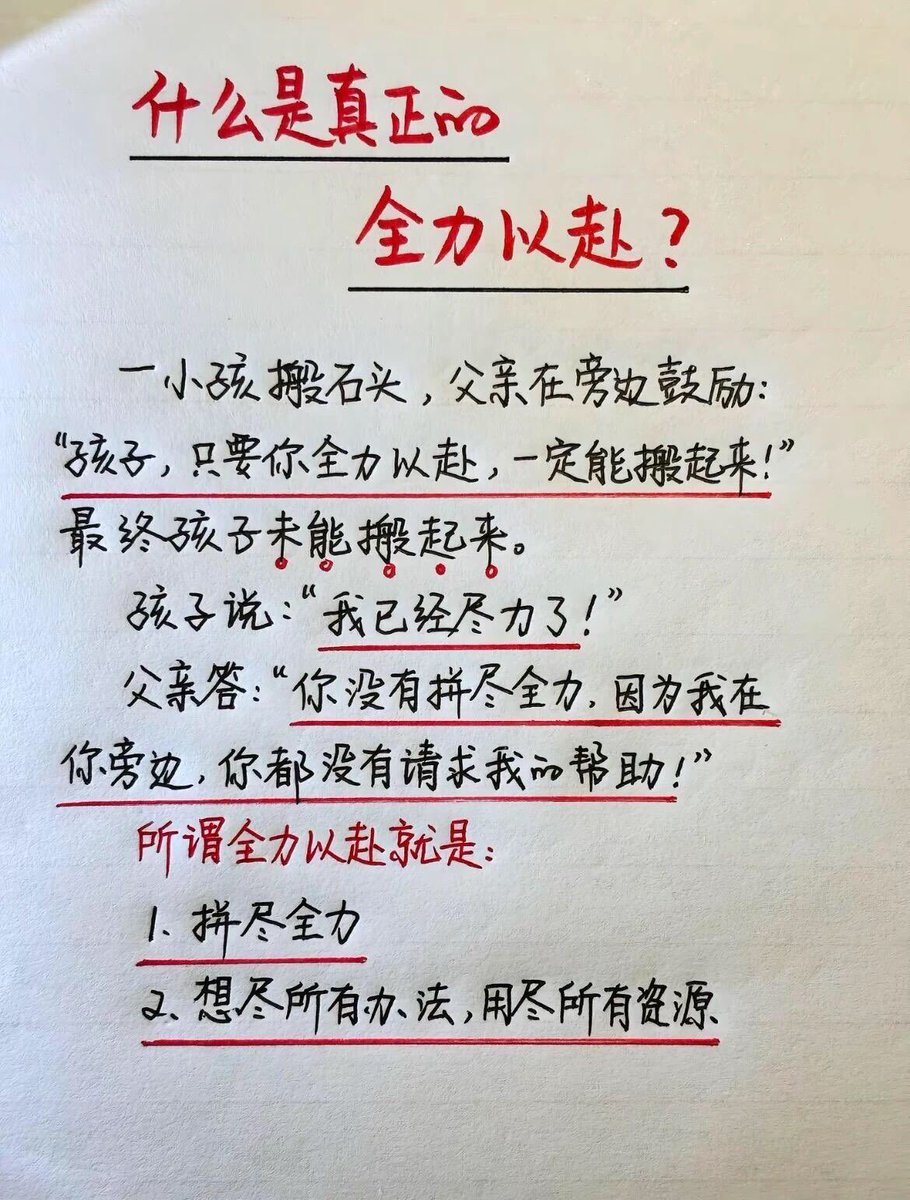 什么是真正的
全力以赴？
一小孩搬石头，父亲在旁边鼓励：
“孩子，只要你全力以赴，一定能搬起来！”
最终孩子未能搬起来。
孩子说：“我已经尽力了！”
父亲答：“你没有拼尽全力，因为我在
你旁边，你都没有请求我的帮助！”
所谓全力以赴就是：
1、拼尽全力
2、想尽所有办法，用尽所有资源